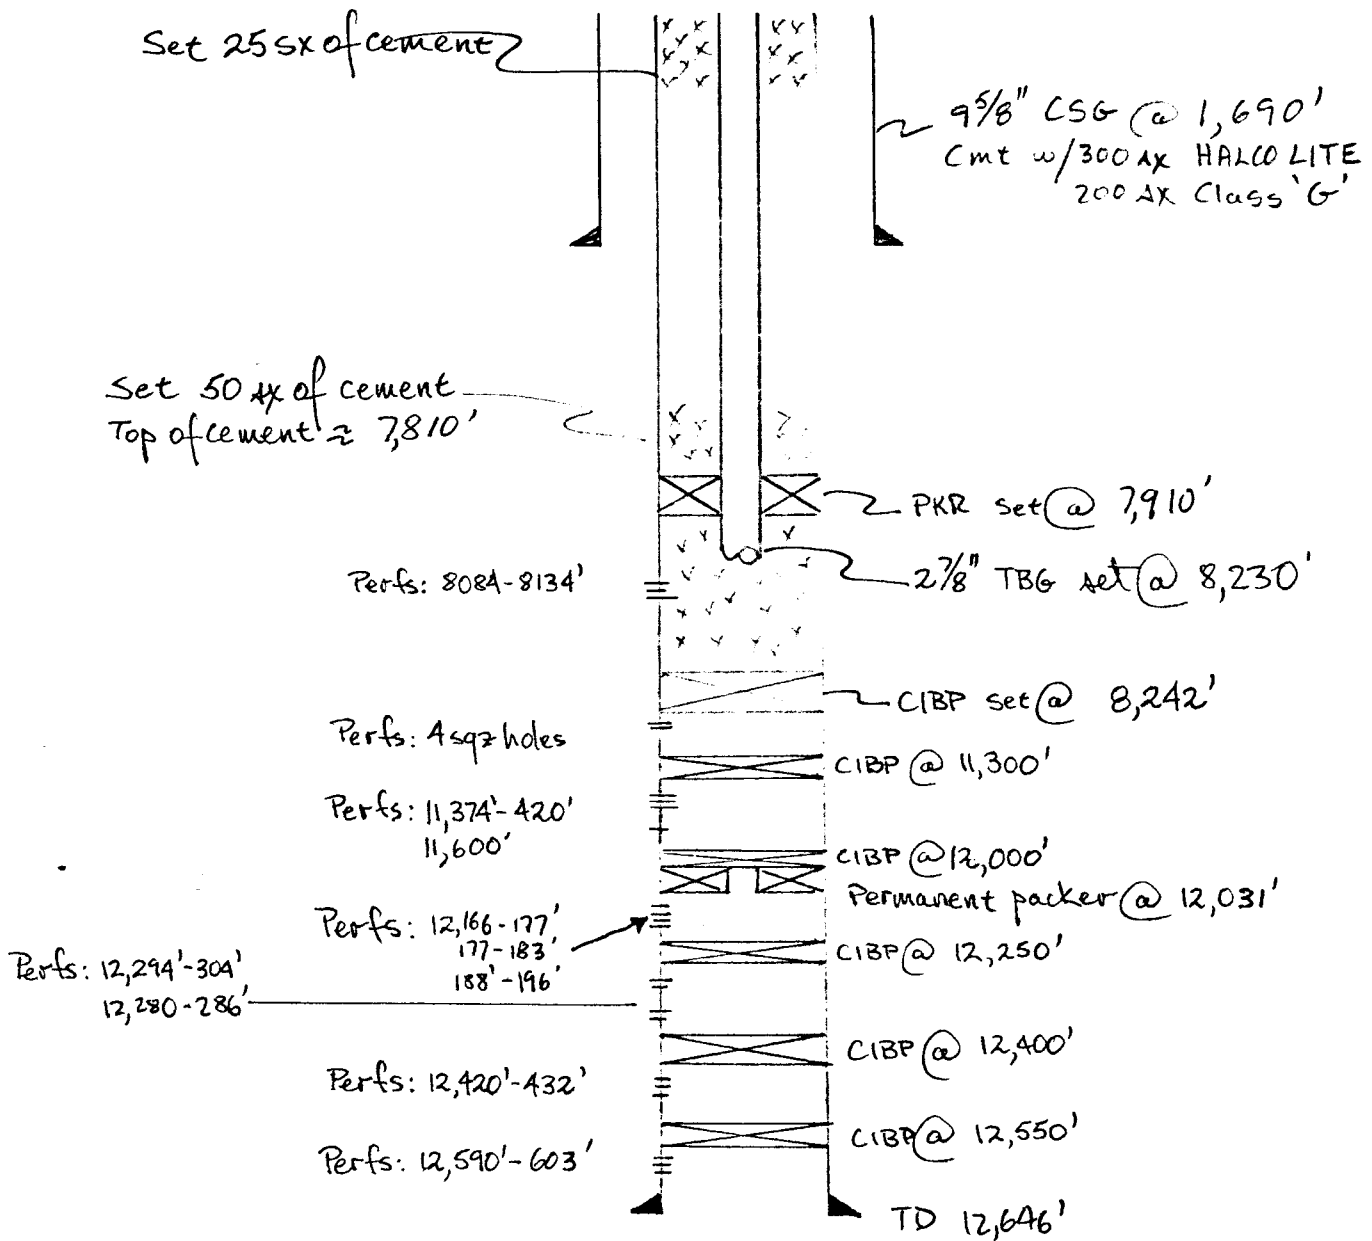 Set 25 sx of cement
9 5/8" CSG @ 1,690'
Cmt w/300 sx HALCO LITE
200 sx Class 'G'
Set 50 sx of cement
Top of cement ≈ 7,810'
PKR set @ 7,910'
2 7/8" TBG set @ 8,230'
Perfs: 8084-8134'
CIBP set @ 8,242'
Perfs: 4 sqz holes
CIBP @ 11,300'
Perfs: 11,374'-420'
11,600'
CIBP @ 12,000'
Permanent packer @ 12,031'
Perfs: 12,166-177'
177-183'
188'-196'
CIBP @ 12,250'
Perfs: 12,294'-304'
12,280-286'
CIBP @ 12,400'
Perfs: 12,420'-432'
CIBP @ 12,550'
Perfs: 12,590'-603'
TD 12,646'